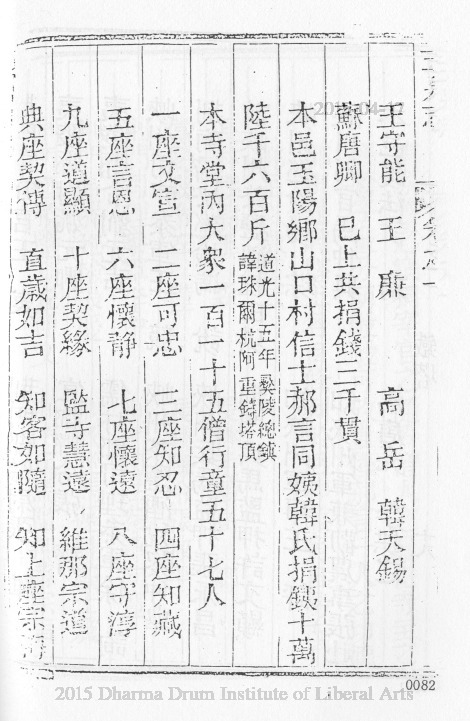 王守能　王廉　高岳　韓天錫
蘇唐卿　巳上共捐錢三千貫
本邑玉陽鄉山口村信士郝言同姨韓氏捐鉄十萬
陸千六百斤　道光十五年彞陵總鎮
諱珠爾杭阿重鑄塔頂
本寺堂內大衆一百一十五僧行童五十七人
一座文宣　二座可忠　三座知忍　四座知藏
五座言恩　六座懷靜　七座懷遠　八座守淳
九座道顯　十座契緣　監寺慧遠　維那宗道
典座契傳　直歲如吉　知客如隨　知上座宗
0082
2015 Dharma Drum Institute of Liberal Arts